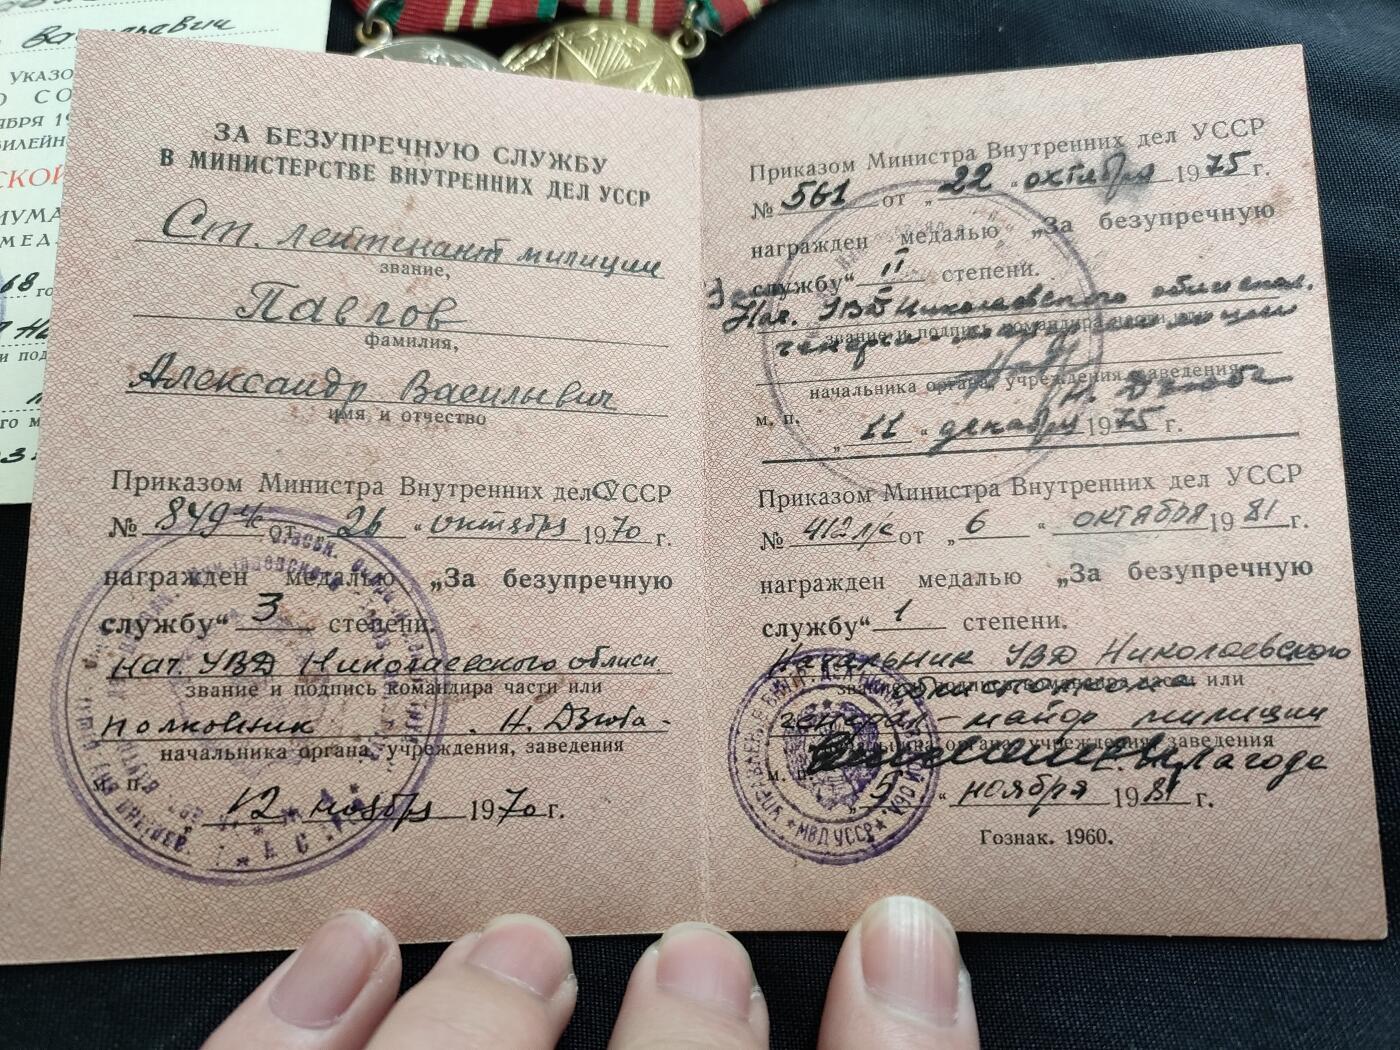 Васильевич
УКАЗО
О СО
ЯБРЯ 19
БИЛЕЙН
СКОЙ
ИУМА
МЕД.
68 го
и под
го м
ЗА БЕЗУПРЕЧНУЮ СЛУЖБУ
В МИНИСТЕРСТВЕ ВНУТРЕННИХ ДЕЛ УССР
Ст. лейтенант милиции
звание,
Павлов
фамилия,
Александр Васильевич
имя и отчество
Приказом Министра Внутренних дел УССР
№ 849 л/с от 26 " октября 1970 г.
награжден медалью „За безупречную
службу“ 3 степени.
Нач. УВД Николаевского облисп.
звание и подпись командира части или
полковник Н. Дзюба
начальника органа, учреждения, заведения
м. п.
12 ноября 1970 г.
Приказом Министра Внутренних дел УССР
№ 561 от „ 22 “ октября 1975 г.
награжден медалью „За безупречную
службу“ II степени.
Нач. УВД Николаевского облиспол.
звание и подпись командира части или
генерал-майор милиции
начальника органа, учреждения, заведения
Н. Дзюба
м. п.
„ 11 “ декабря 1975 г.
Приказом Министра Внутренних дел УССР
№ 412 л/с от „ 6 “ октября 1981 г.
награжден медалью „За безупречную
службу“ 1 степени.
Начальник УВД Николаевского
облисполкома
звание и подпись командира части или
генерал-майор милиции
начальника органа, учреждения, заведения
м. п.
„ 5 “ ноября 1981 г.
МВД УССР
Гознак. 1960.